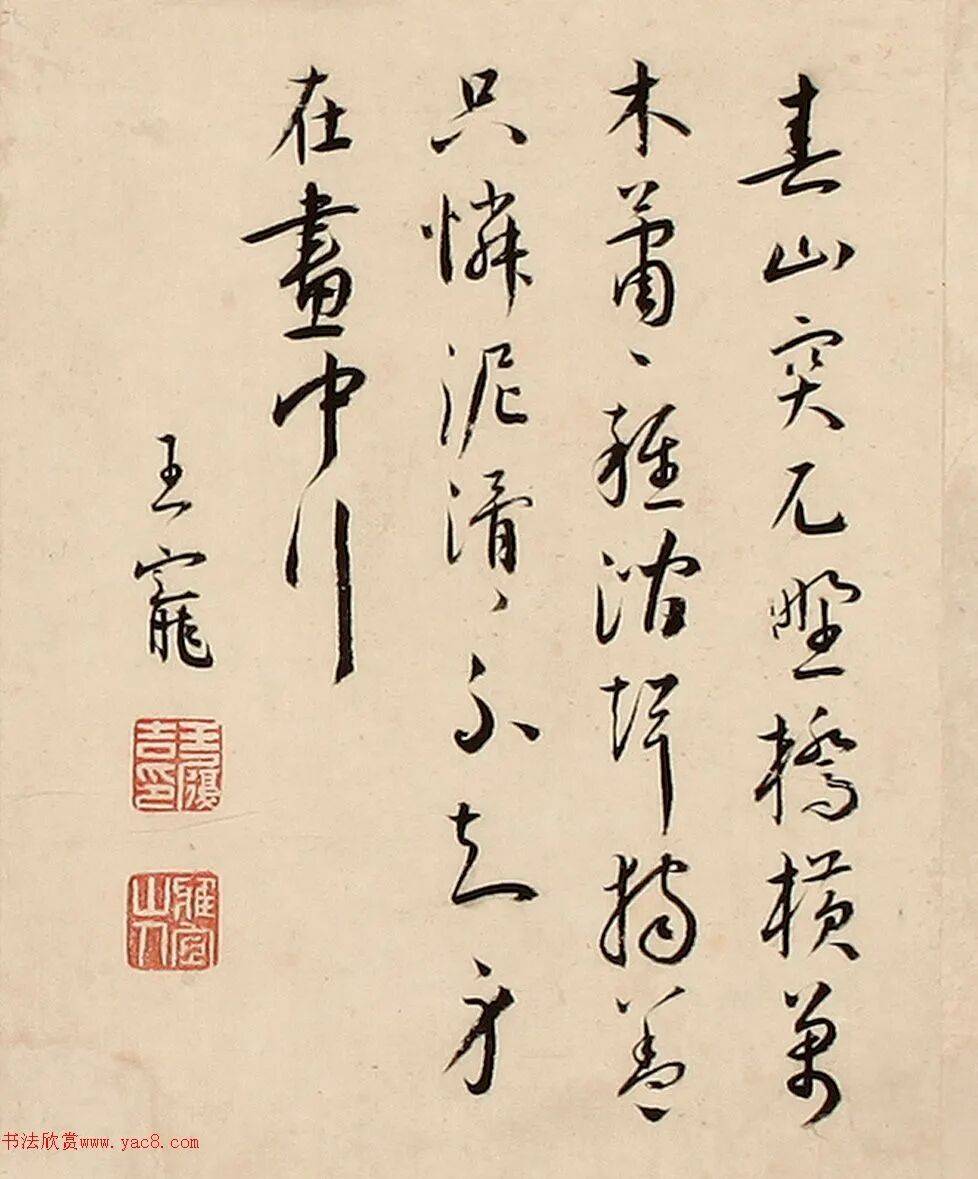 春山突兀野橋橫萬
木蕭〻雜澗聲持蓋
只憐泥滑〻不知身
在畫中行
王寵
王履吉印
雅宜山人
书法欣赏www.yac8.com